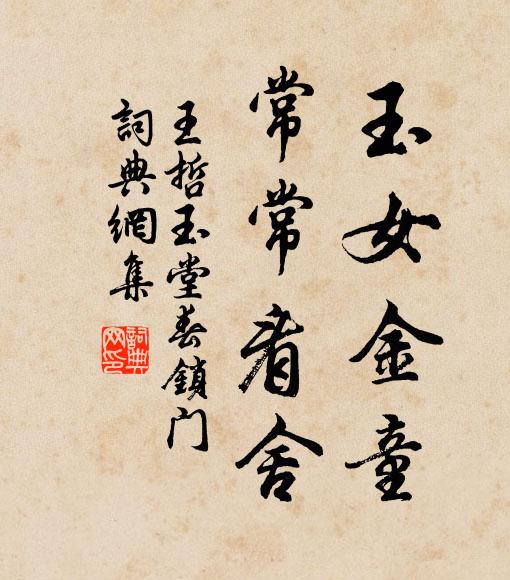 玉女金童
常常看舍
王哲玉堂春鎖門
詞典網集
詞典
网印